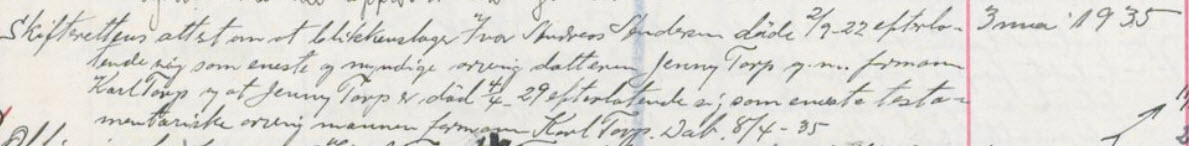 Skifterettens attest om at blikkenslager Ivar Andreas Andersen døde 2/9-22 efterla- 3 mai 1935
tende sig som eneste og myndige arving datteren Jenny Torp g.m. formann
Karl Torp og at Jenny Torp er død 4/4-29 efterlatende sig som eneste testa-
mentariske arving mannen formann Karl Torp. Dab. 8/4-35